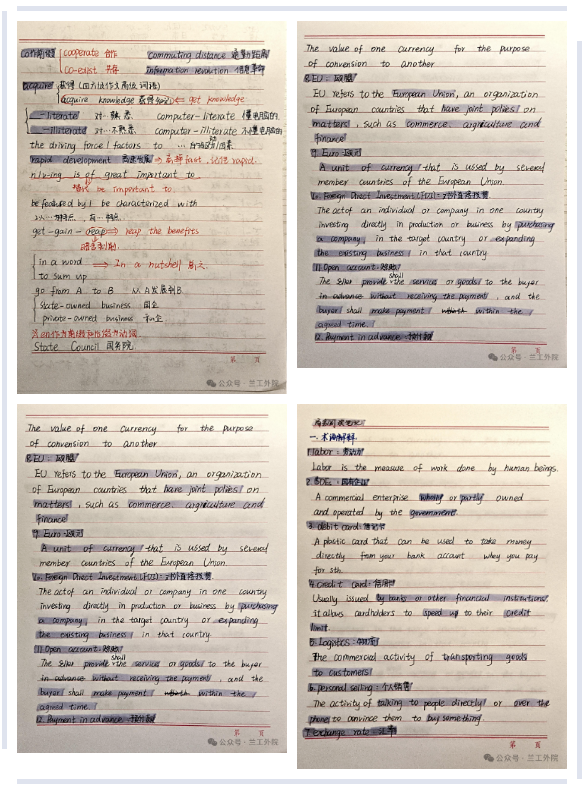 co作前缀 cooperate 合作 commuting distance 通勤距离
co-exist 共存 Information revolution 信息革命
acquire 获得
acquire knowledge 获得知识 ⇐ get knowledge
-literate 对…熟悉 computer-literate 懂电脑的
-illiterate 对…不熟悉 computer-illiterate 不懂电脑的
the driving force / factors to
rapid development 高速发展 ⇒ 高辨fast, 记住rapid.
n. / v-ing is of great important to
替代 be important to
be featured by / be characterized with
get - gain - reap ⇒ reap the benefits
in a word ⇒ In a nutshell
to sum up
go from A to B 从A发展到B
State-owned business 国企
private-owned business 私企
State Council 国务院
第 页
公众号 · 兰工外院
The value of one currency for the purpose
of convension to another
8.EU: 欧盟
EU refers to the European Union, an organization
of European countries that have joint polies on
matters, such as commerce, argniculture and
finance
9. Euro: 欧元
A unit of currency that is ussed by several
member countries of the European Union.
10. Foreign Direct Investment (FDI): 外商直接投资
The act of an individual or company in one country
investing directly in production or business by purchasing
a company, in the target country or expanding
the existing business in that country
11. Open account: 赊账
The provide the services or goods to the buyer
in advance without receiving the payment, and the
buyer shall make payment within the
agreed time.
12. Payment in advance: 预付款
第 页
公众号 · 兰工外院
The value of one currency for the purpose
of convension to another
8.EU: 欧盟
EU refers to the European Union, an organization
of European countries that have joint polies on
matters, such as commerce, argniculture and
finance
9. Euro: 欧元
A unit of currency that is ussed by several
member countries of the European Union.
10. Foreign Direct Investment (FDI): 外商直接投资
The act of an individual or company in one country
investing directly in production or business by purchasing
a company, in the target country or expanding
the existing business in that country
11. Open account: 赊账
The provide the services or goods to the buyer
in advance without receiving the payment, and the
buyer shall make payment within the
agreed time.
12. Payment in advance: 预付款
第 页
公众号 · 兰工外院
一. 术语解释
1 labor: 劳动力
Labor is the measure of work done by human beings.
2. SOEs: 国有企业
A commercial enterprise wholly or partly owned
and operated by the government
3. debit card: 借记卡
A plastic card that can be used to take money
directly from your bank account whey you pay
for sth.
4. Credit card: 信用卡
Usually issued by banks or other financial institutions.
it allows cardholders to speed up to their credit
limit
5. Logistics: 物流
The commercial activity of transporting goods
to customers
6. personal selling: 个人销售
The activity of talking to people directly or over the
phone to convince them to buy something.
7 exchange rate: 汇率
第 页
公众号 · 兰工外院